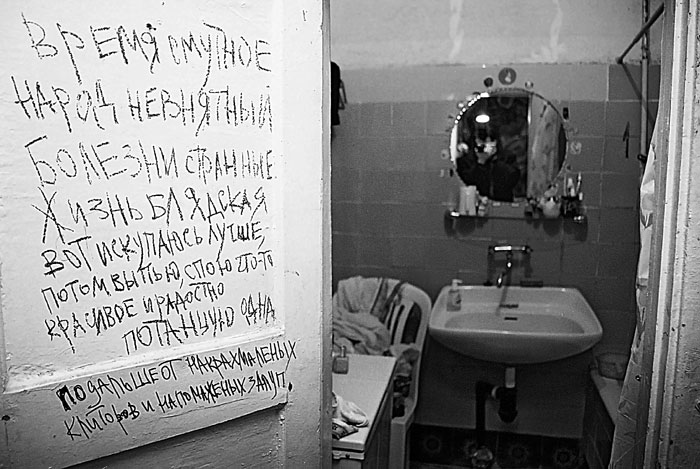 ВРЕМЯ СМУТНОЕ
НАРОД НЕВНЯТНЫЙ
БОЛЕЗНИ СТРАННЫЕ
ЖИЗНЬ БЛЯДСКАЯ
ВОТ ИСКУПАЮСЬ ЛУЧШЕ,
ПОТОМ ВЫПЬЮ, СПОЮ ЧТО-ТО
КРАСИВОЕ И РАДОСТНО
ПОТАНЦУЮ ОДНА
ПОДАЛЬШЕ ОТ НАКРАХМАЛЕНЫХ
КЛИТОРОВ И НАПОМАЖЕНЫХ ЗАЛУП.